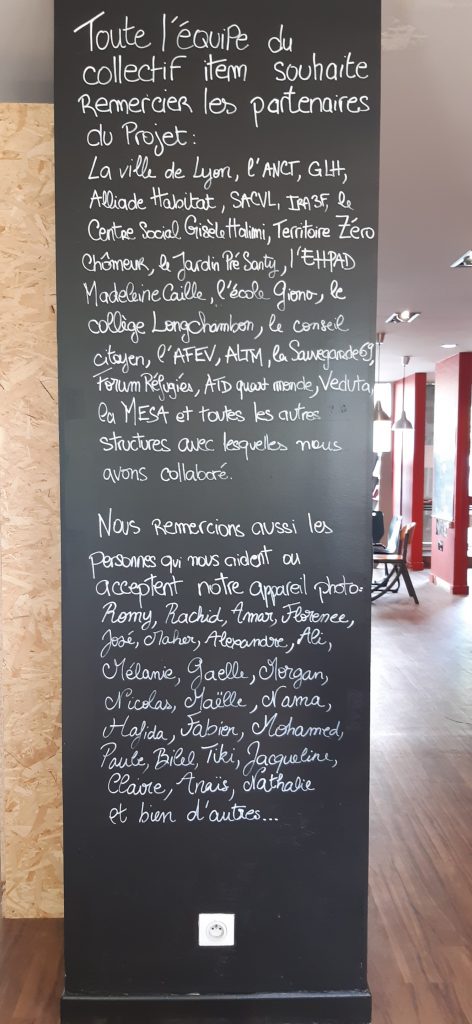 Toute l'équipe du
collectif item souhaite
Remercier les partenaires
du Projet:
La ville de Lyon, l'ANCT, GLH,
Alliade Habitat, SACVL, IRA3F, le
Centre Social Gisèle Halimi, Territoire Zéro
Chômeur, le Jardin Pré Santy, l'EHPAD
Madeleine Caille, l'école Giono, le
collège Longchambon, le conseil
citoyen, l'AFEV, ALTM, la Sauvegarde 69,
Forum Réfugiés, ATD quart monde, Veduta,
la MESA et toutes les autres
structures avec lesquelles nous
avons collaboré.
Nous Remercions aussi les
personnes qui nous aident ou
acceptent notre appareil photo:
Romy, Rachid, Amar, Florence,
José, Maher, Alexandre, Ali,
Mélanie, Gaelle, Morgan,
Nicolas, Maëlle, Nama,
Hafida, Fabien, Mohamed,
Paule, Bilel, Tiki, Jacqueline,
Claire, Anaïs, Nathalie
et bien d'autres...